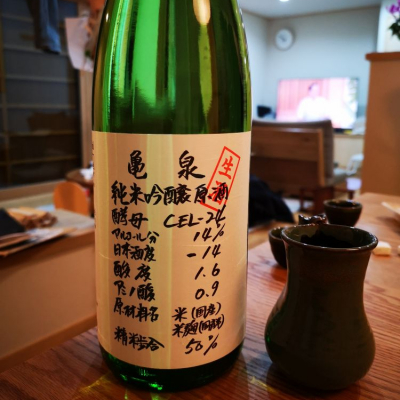 亀泉
生
純米吟醸原酒
酵母 CEL-24
アルコール分 14%
日本酒度 -14
酸度 1.6
アミノ酸 0.9
原材料名 米(国産)
米麹(国産米)
精米歩合 50%